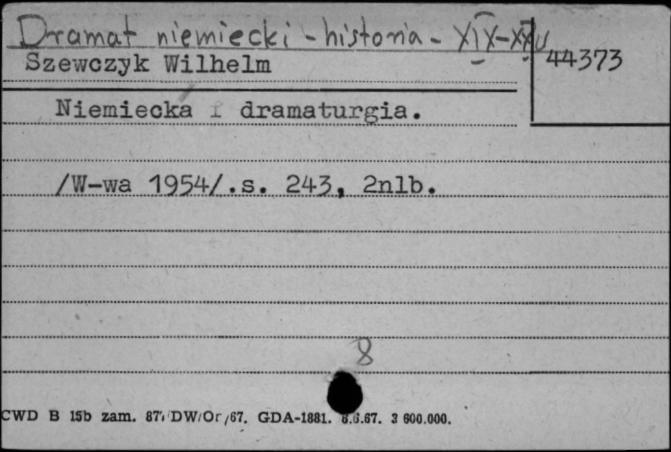 Dramat niemiecki - historia - XIX-XX w
Szewczyk Wilhelm
44373
Niemiecka dramaturgia.
/W-wa 1954/.s. 243, 2nlb.
8
CWD B 15b zam. 87 DW/Or/67. GDA-1881. 8.6.67. 3 600.000.